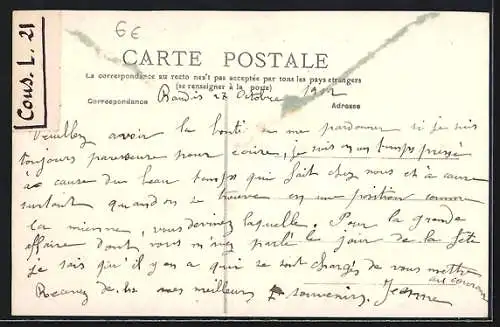 6€
Cons. L. 21
CARTE POSTALE
La correspondance au recto n'est pas acceptée par tous les pays étrangers
(se renseigner à la poste)
Correspondance
Adresse
27 Octobre 1912
Veuillez avoir la bonté de me pardonner si je suis
toujours paresseuse pour écrire, je suis un temps pressé
à cause du beau temps qui fait chez nous et à cause
surtout quand on se trouve en une position comme
la mienne, vous devinez laquelle. Pour la grande
affaire dont vous m'avez parlé le jour de la fête
je sais qu'il y en a qui se sont chargés de vous mettre
au courant
Recevez de moi mes meilleurs souvenirs. Jeanne